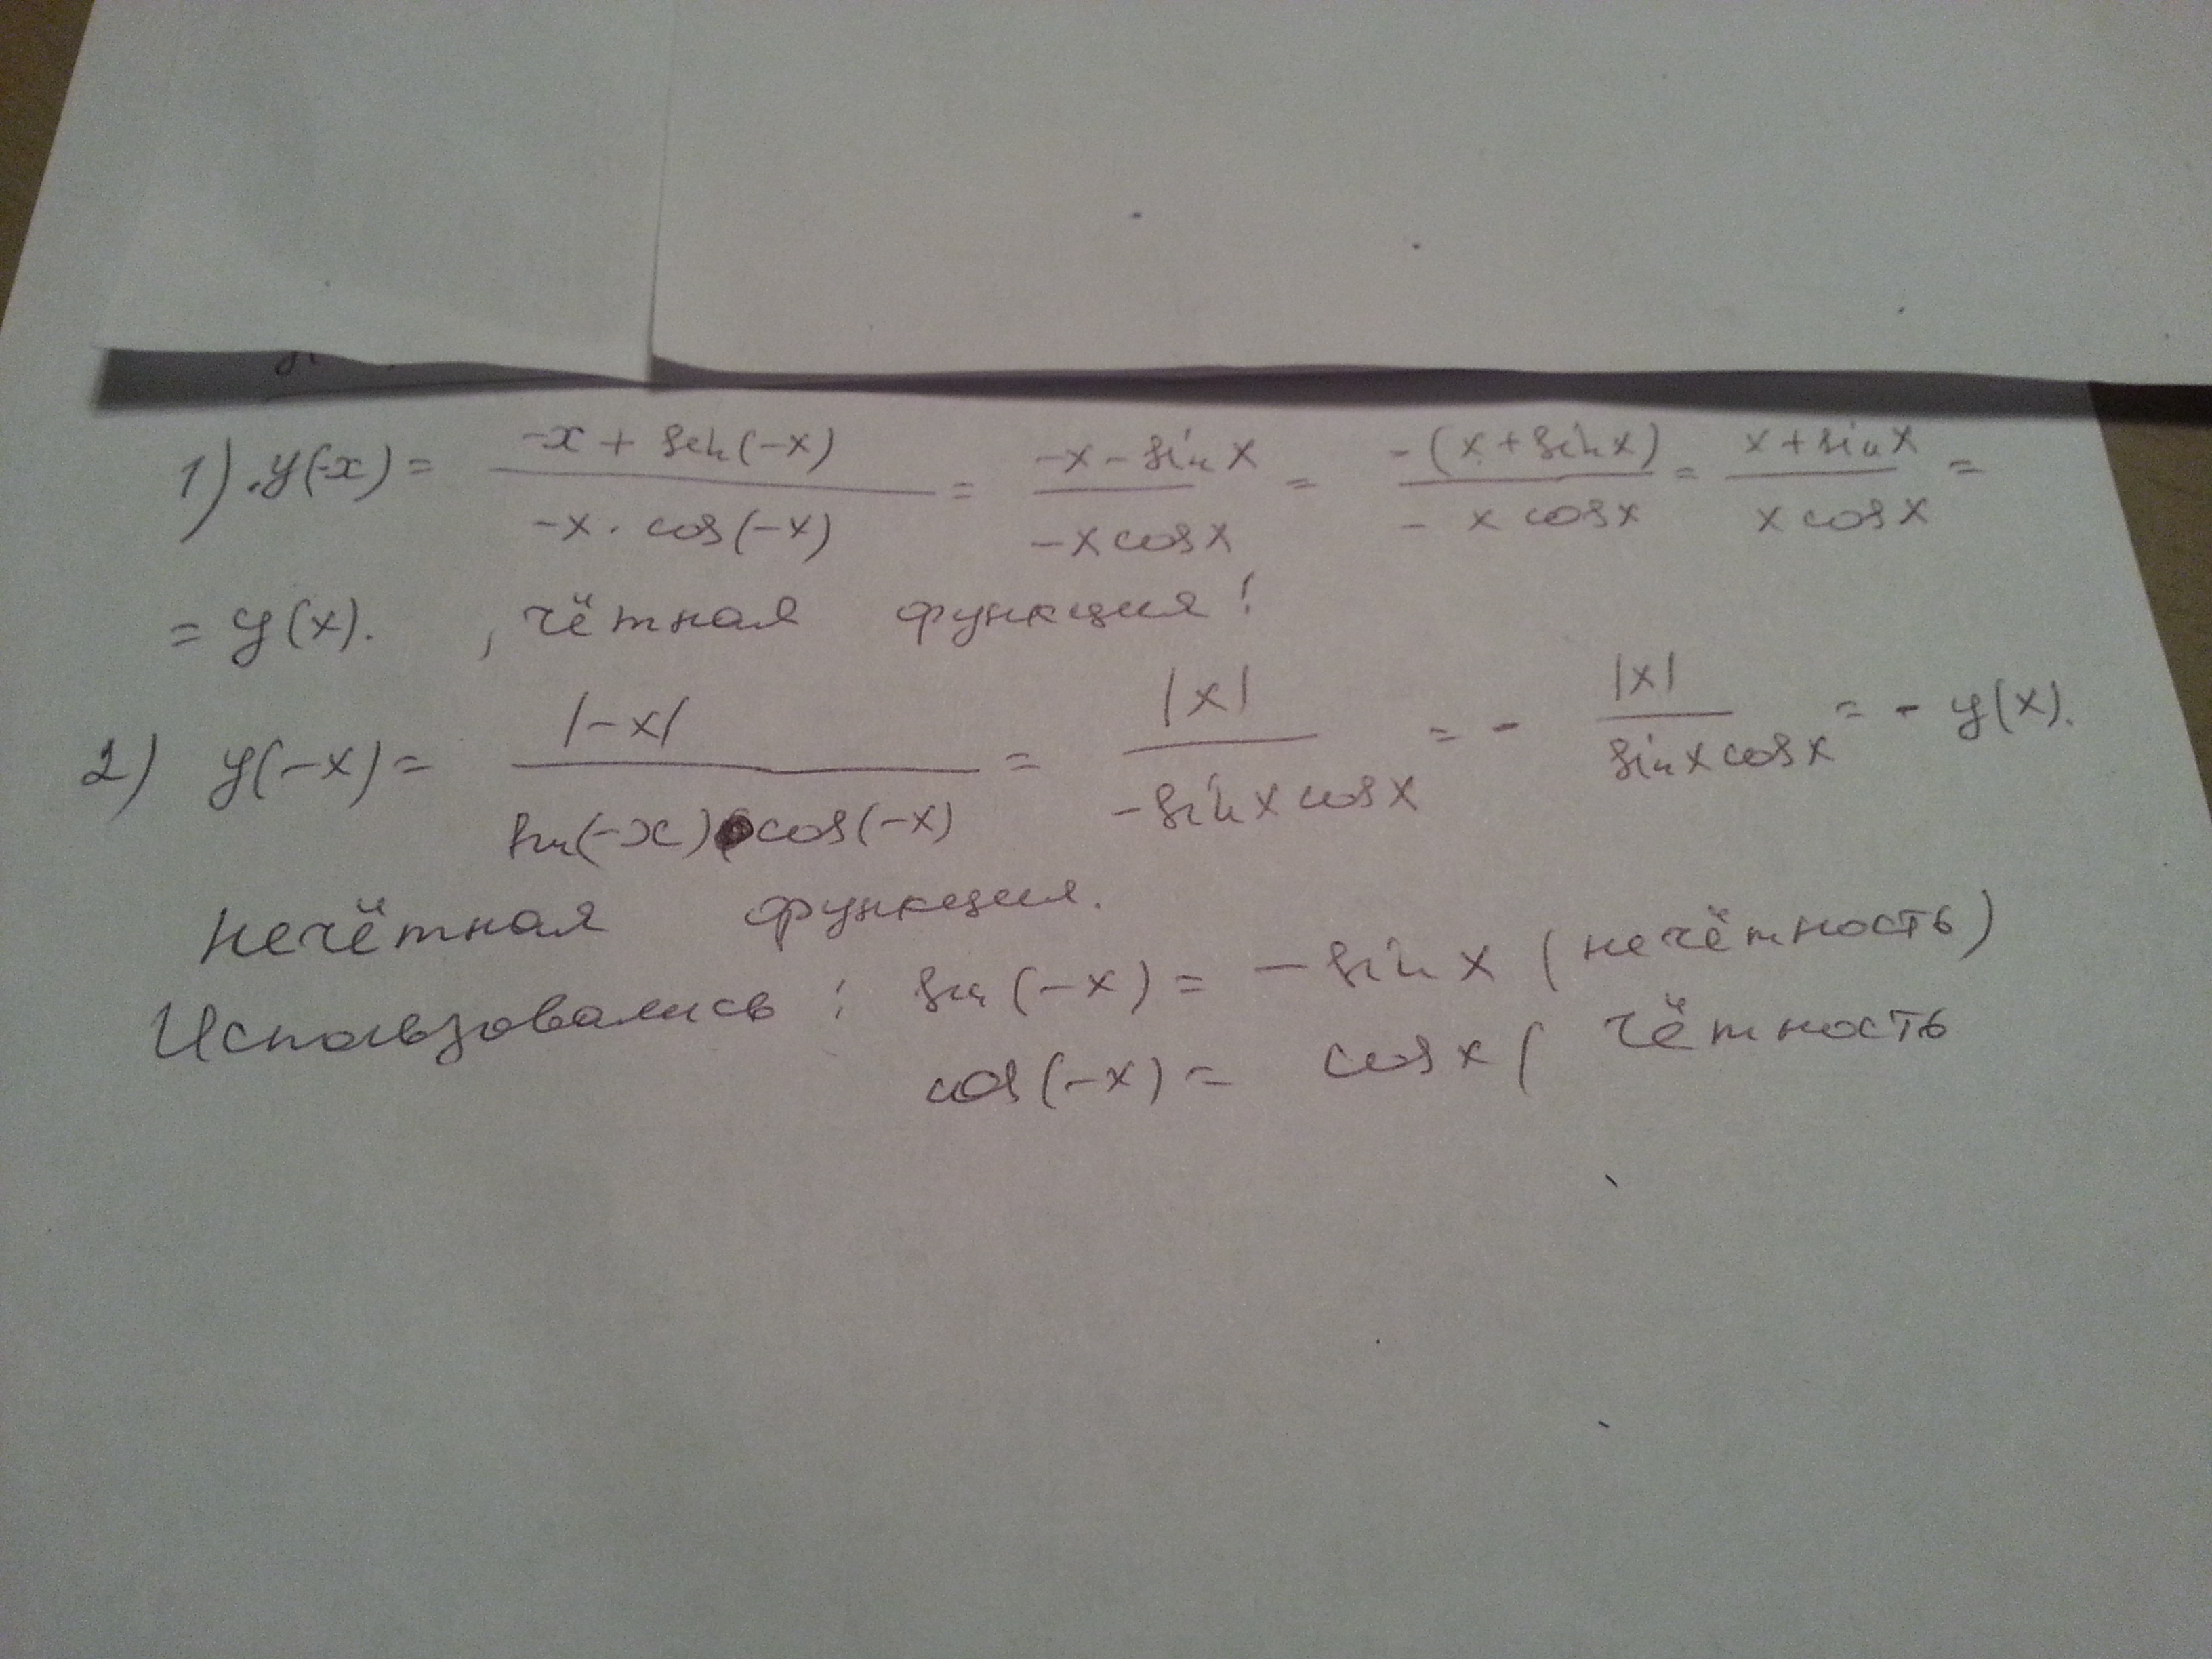 1) y(-x) = (-x + sin(-x)) / (-x · cos(-x)) = (-x - sin x) / (-x cos x) = (-(x + sin x)) / (- x cos x) = (x + sin x) / (x cos x) =
= y(x). , чётная функция!
2) y(-x) = |-x| / (sin(-x) cos(-x)) = |x| / (-sin x cos x) = - |x| / (sin x cos x) = - y(x).
нечётная функция.
Использовались : sin(-x) = - sin x (нечётность)
cos(-x) = cos x ( чётность